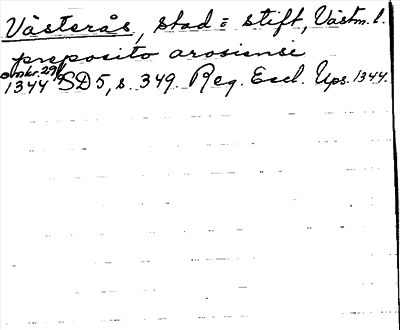 Västerås, stad = stift, Västm. l.
preposito arosiense
omkr. 29/6
1344 SD 5, s. 349. Reg. Eccl. Ups. 1344.